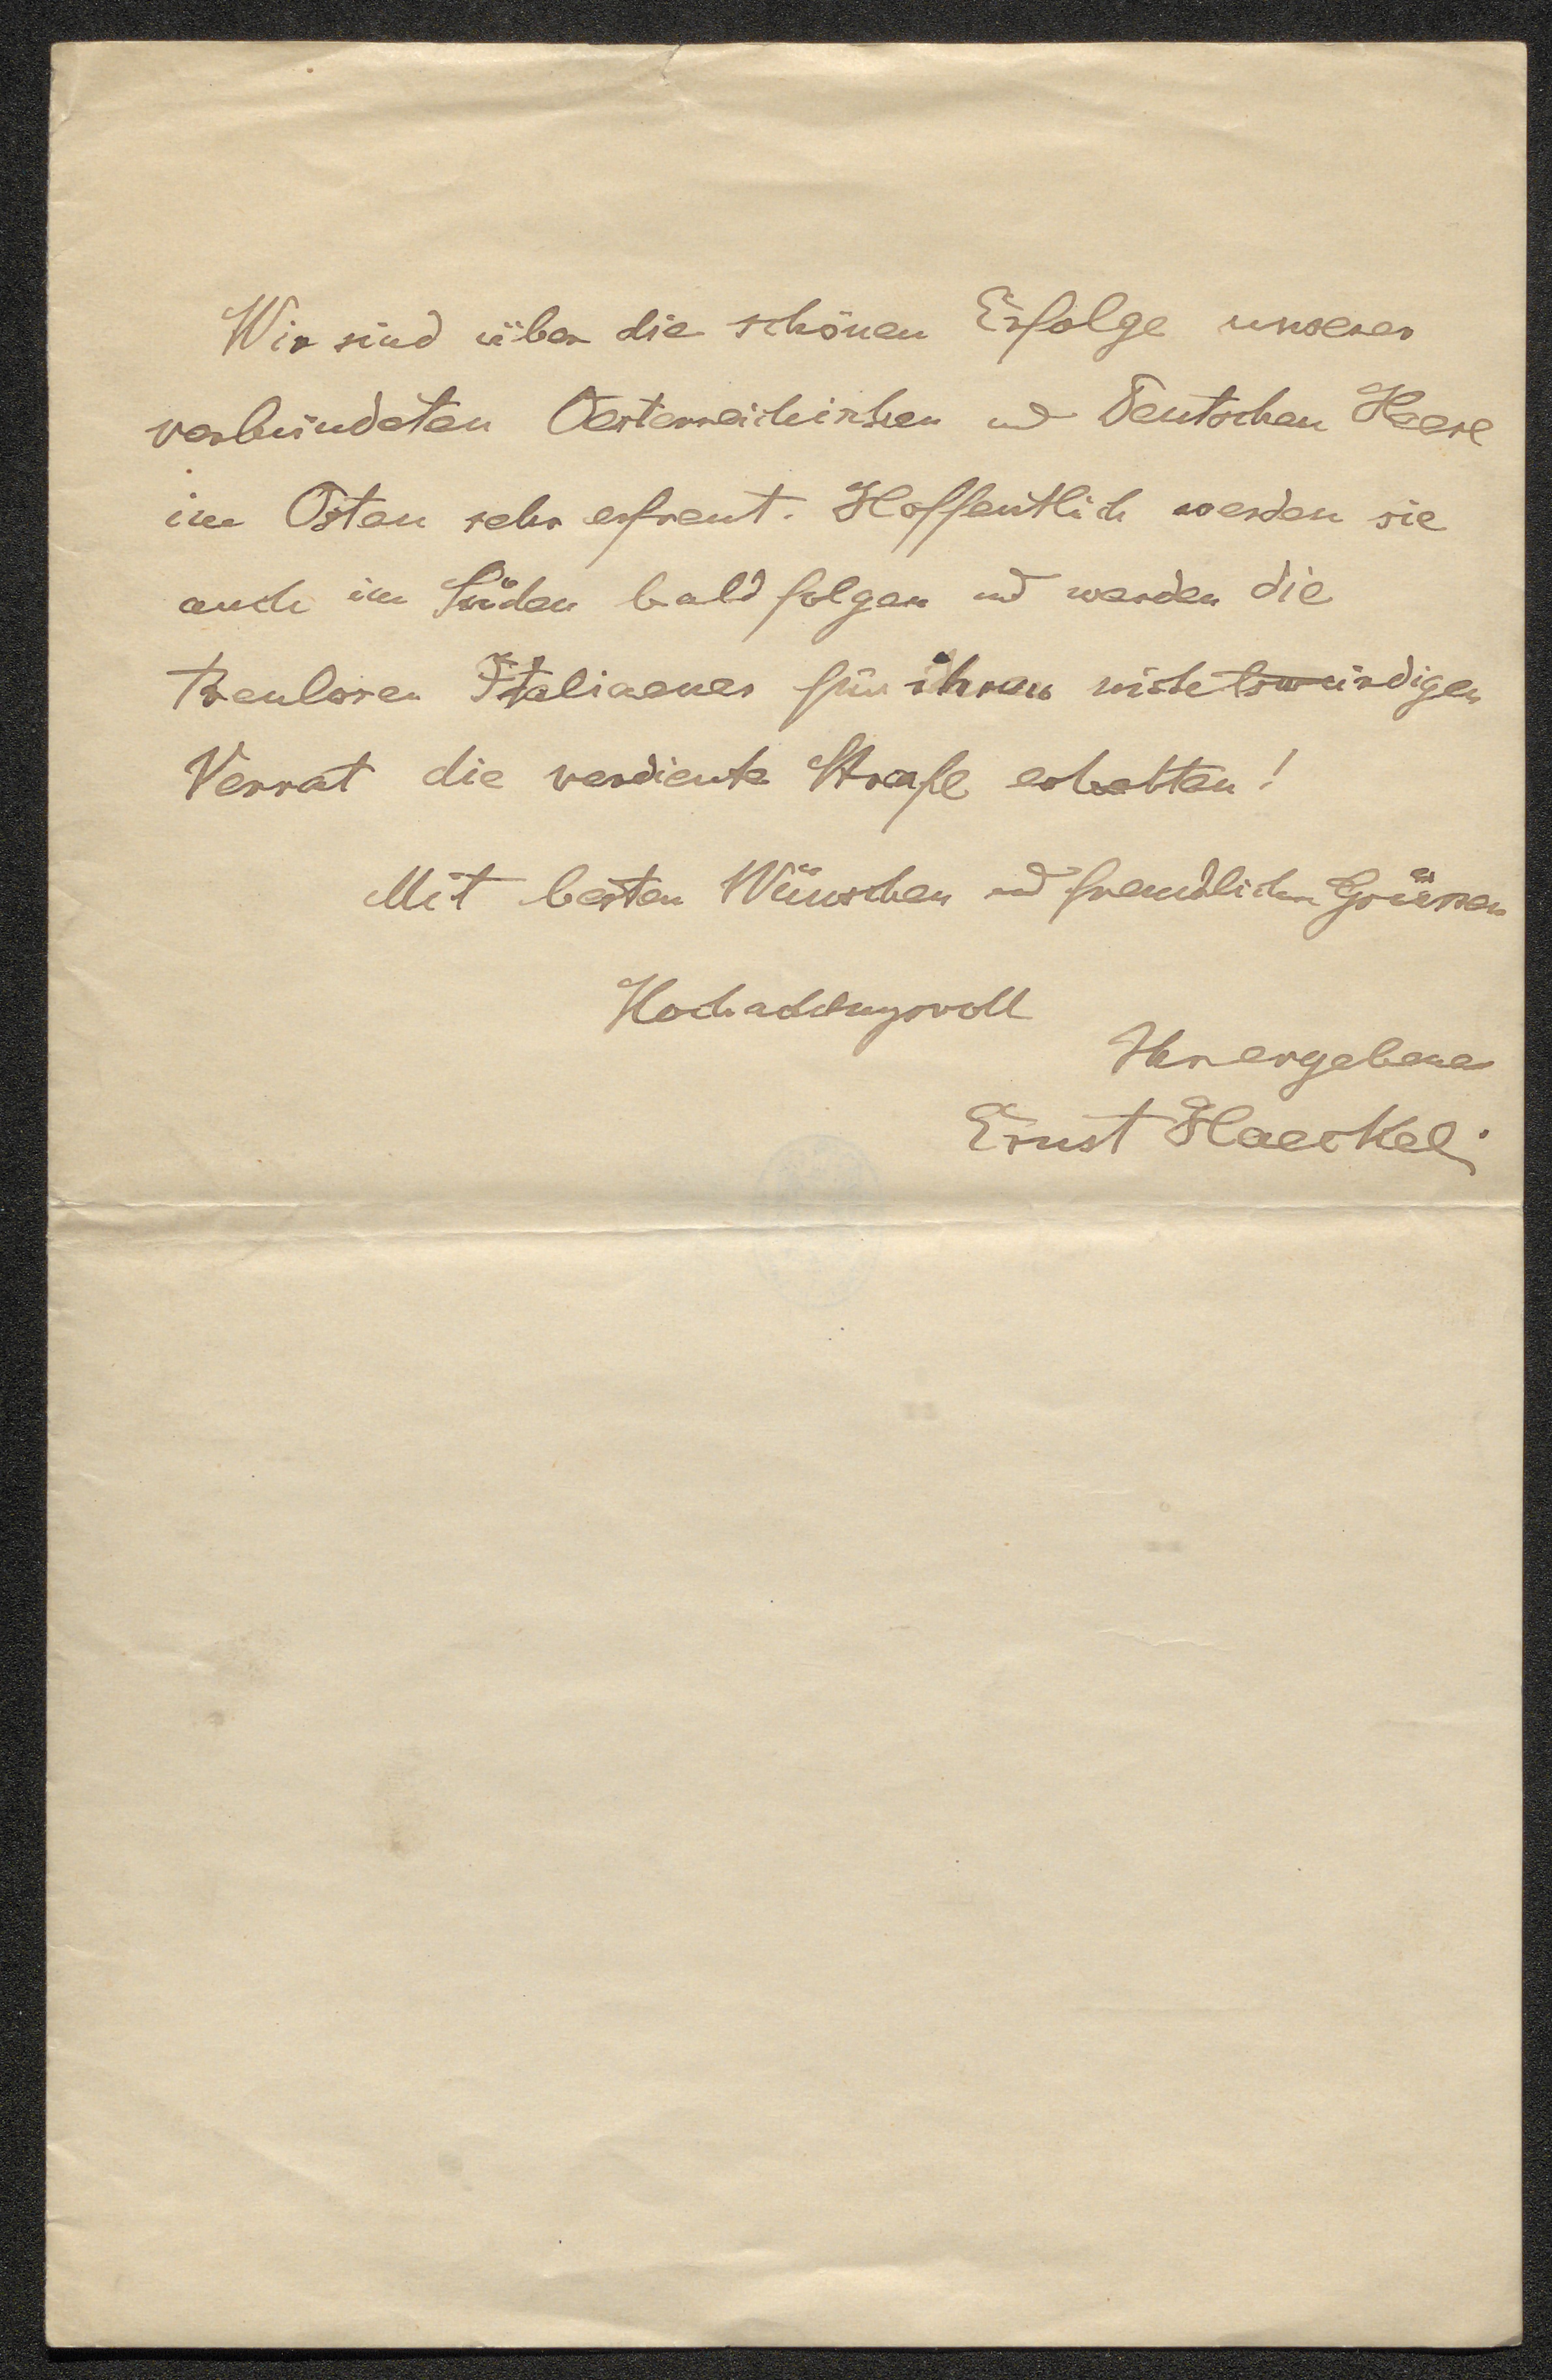 Wir sind über die schönen Erfolge unserer
verbündeten Oesterreichischen und Deutschen Heere
im Osten sehr erfreut. Hoffentlich werden sie
auch im Süden bald folgen und werden die
treulosen Italiaener für ihren nichtswürdigen
Verrat die verdiente Strafe erhalten!
Mit besten Wünschen und freundlichen Grüssen
Hochachtungsvoll
Ihr ergebener
Ernst Haeckel.